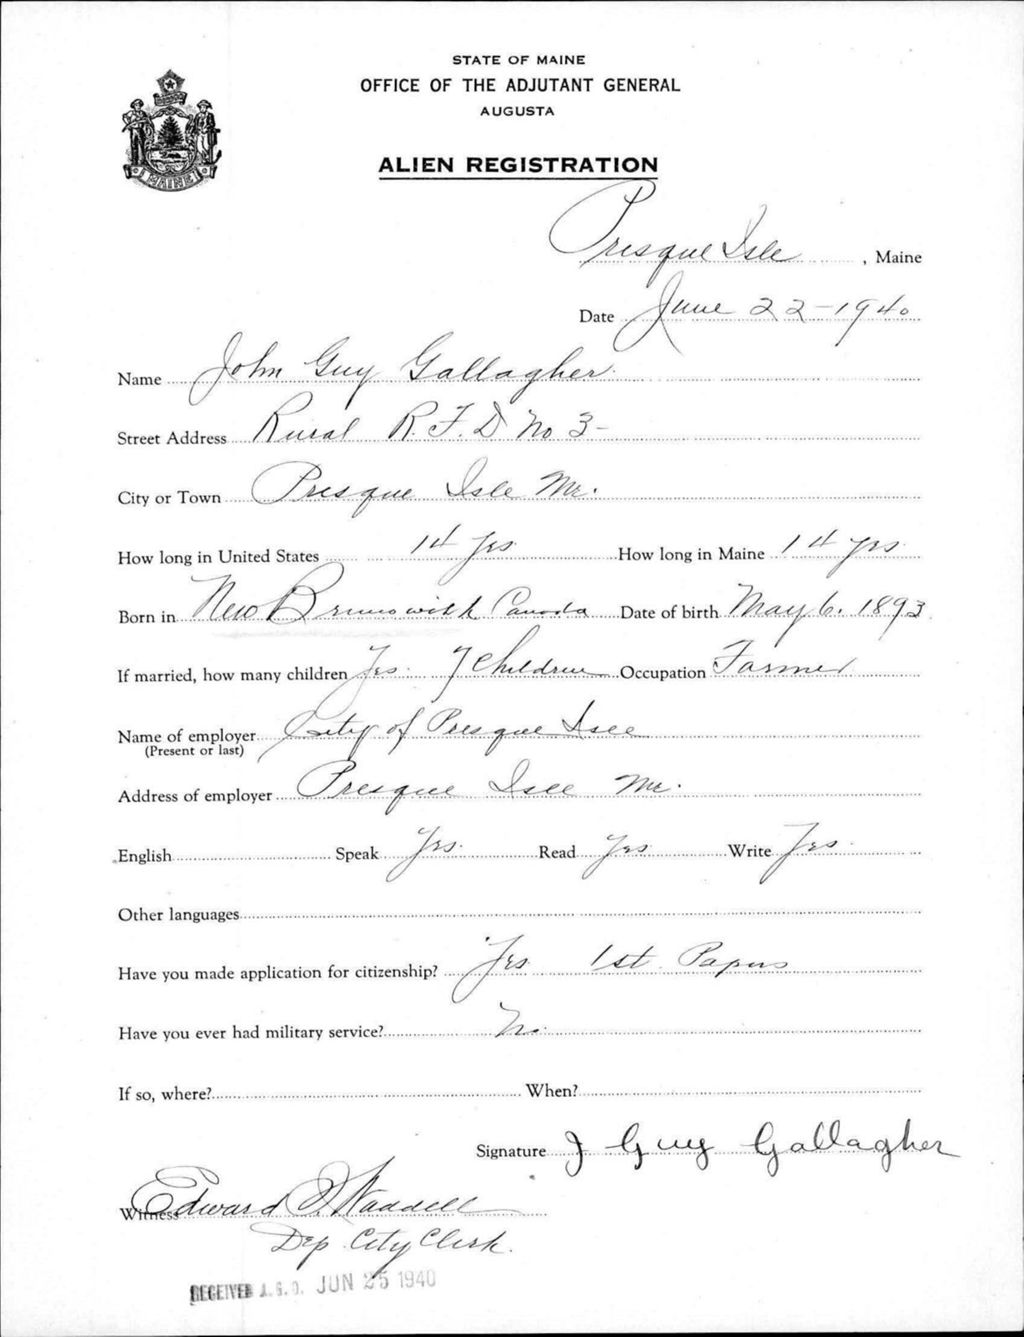 STATE OF MAINE
OFFICE OF THE ADJUTANT GENERAL
AUGUSTA
ALIEN REGISTRATION
MAINE
Presque Isle, Maine
Date June 22-1940
Name John Guy Gallagher
Street Address Rural R.F.D No 3-
City or Town Presque Isle Me.
How long in United States 14 yrs How long in Maine 14 yrs
Born in New Brunswick Canada Date of birth May 6. 1893
If married, how many children Yes. 7 Children Occupation Farmer
Name of employer City of Presque Isle
(Present or last)
Address of employer Presque Isle Me.
English Speak Yes. Read Yes Write Yes
Other languages
Have you made application for citizenship? Yes 1st. Papers
Have you ever had military service? No.
If so, where? When?
Signature J Guy Gallagher
Witness Edward Waddell
Dep. City Clerk.
RECEIVED A.G.O. JUN 25 1940